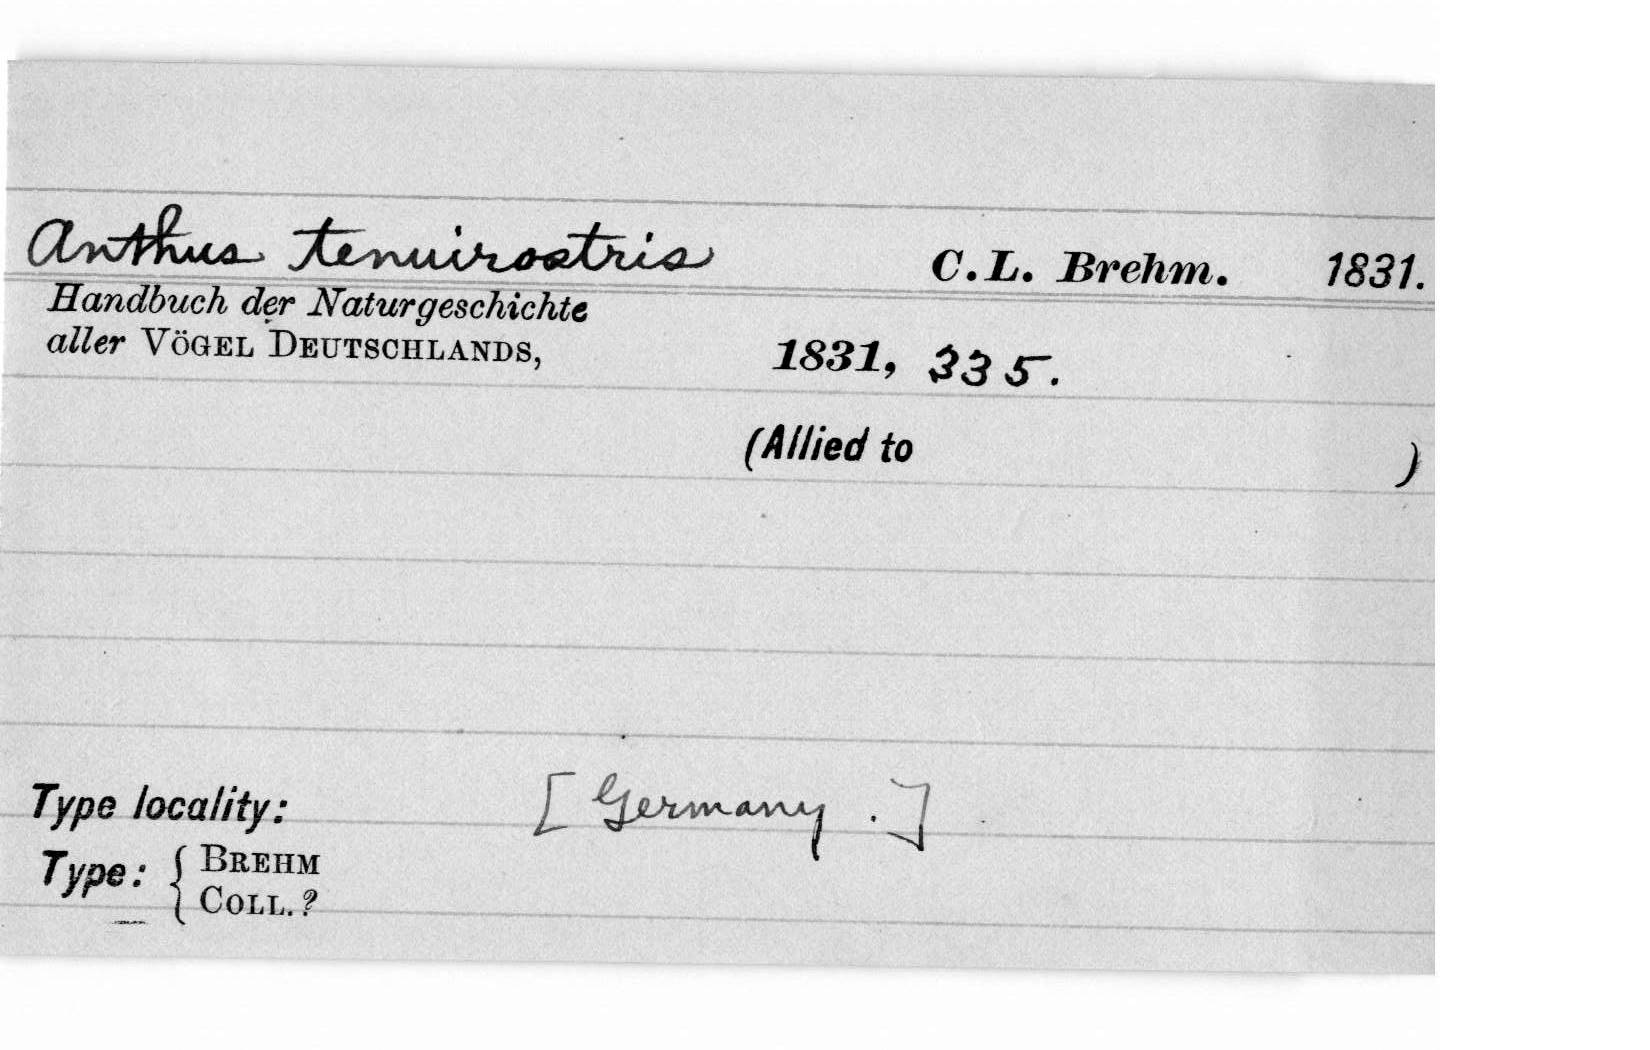 Anthus tenuirostris C.L. Brehm. 1831.
Handbuch der Naturgeschichte
aller VÖGEL DEUTSCHLANDS, 1831, 335.
(Allied to )
Type locality: [Germany.]
Type: { BREHM
COLL.?